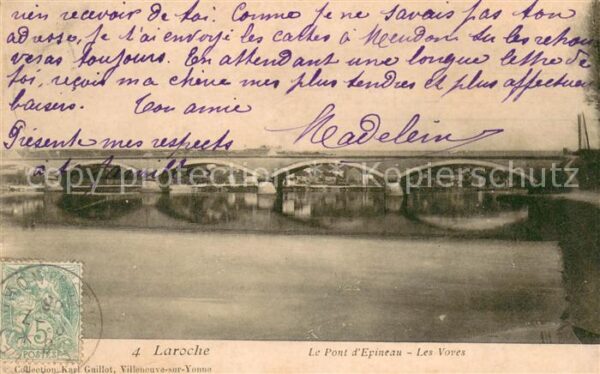 rien recevoir de toi. Comme je ne savais pas ton
adresse, je t'ai envoyé les cartes à Meudon tu les retrou
veras toujours. En attendant une longue lettre de
toi, reçois ma chère mes plus tendres et plus affectueux
baisers. Ton amie
Madelein
Présente mes respects
à ta famille
copyright protection Kopierschutz
5
POSTES
4 Laroche
Le Pont d'Epineau - Les Voves
Collection Karl Guillot, Villeneuve-sur-Yonne